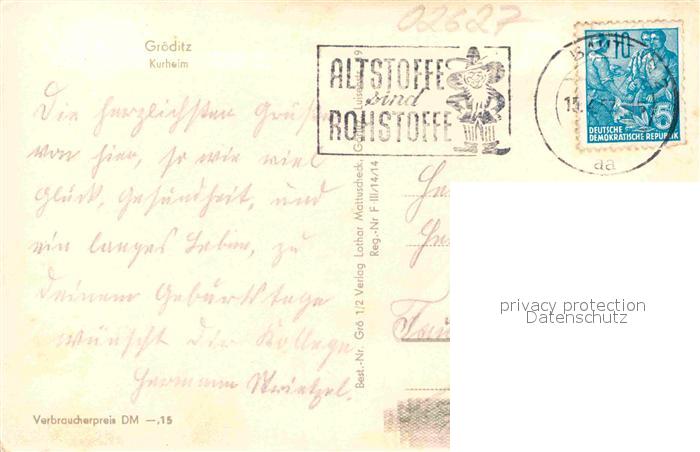 02627
Gröditz
Kurheim
ALTSTOFFE
sind
ROHSTOFFE
10
DEUTSCHE
DEMOKRATISCHE REPUBLIK
5
aa
Die herzlichsten Grüße
von hier, so wie viel
Glück, Gesundheit, und
ein langes Leben, zu
Deinem Geburtstage
wünscht Dir Kollege
Hermann
Verbraucherpreis DM —,15
Best.-Nr. Grö 1/2 Verlag Lothar Mattuscheck,
Reg.-Nr F III/14/14
privacy protection
Datenschutz